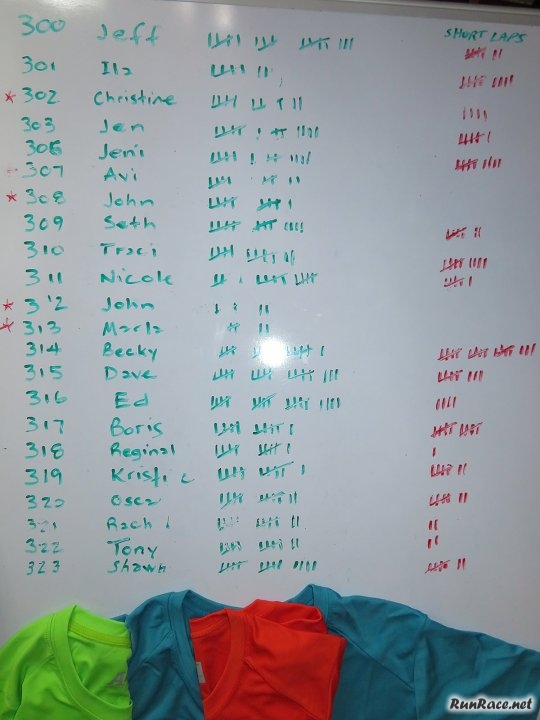 SHORT LAPS
300 Jeff
301 Ila
* 302 Christine
303 Jen
306 Jeni
307 Avi
* 308 John
309 Seth
310 Traci
311 Nicole
* 312 John
* 313 Marla
314 Becky
315 Dave
316 Ed
317 Boris
318 Reginal
319 Kristi
320 Osca
321 Rach
322 Tony
323 Shawn
RunRace.net